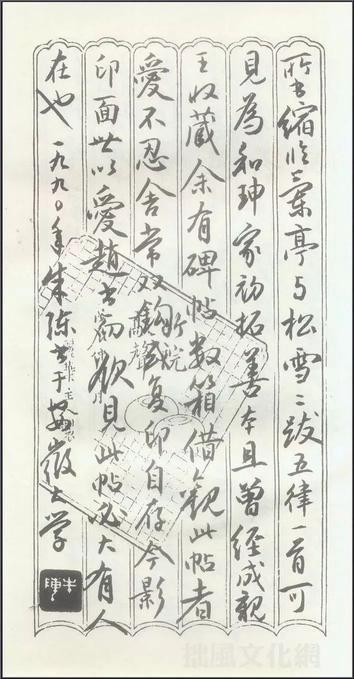 所书缩临兰亭与松雪二跋五律一首可
见为和珅家初拓善本且曾经成亲
王收藏余有碑帖数箱借观此帖者
爱不忍舍常双钩或复印自存今影
印面世以爱赵书初欣见此帖必大有人
在也 一九九〇年朱陈书于安徽大学
拙風文化網